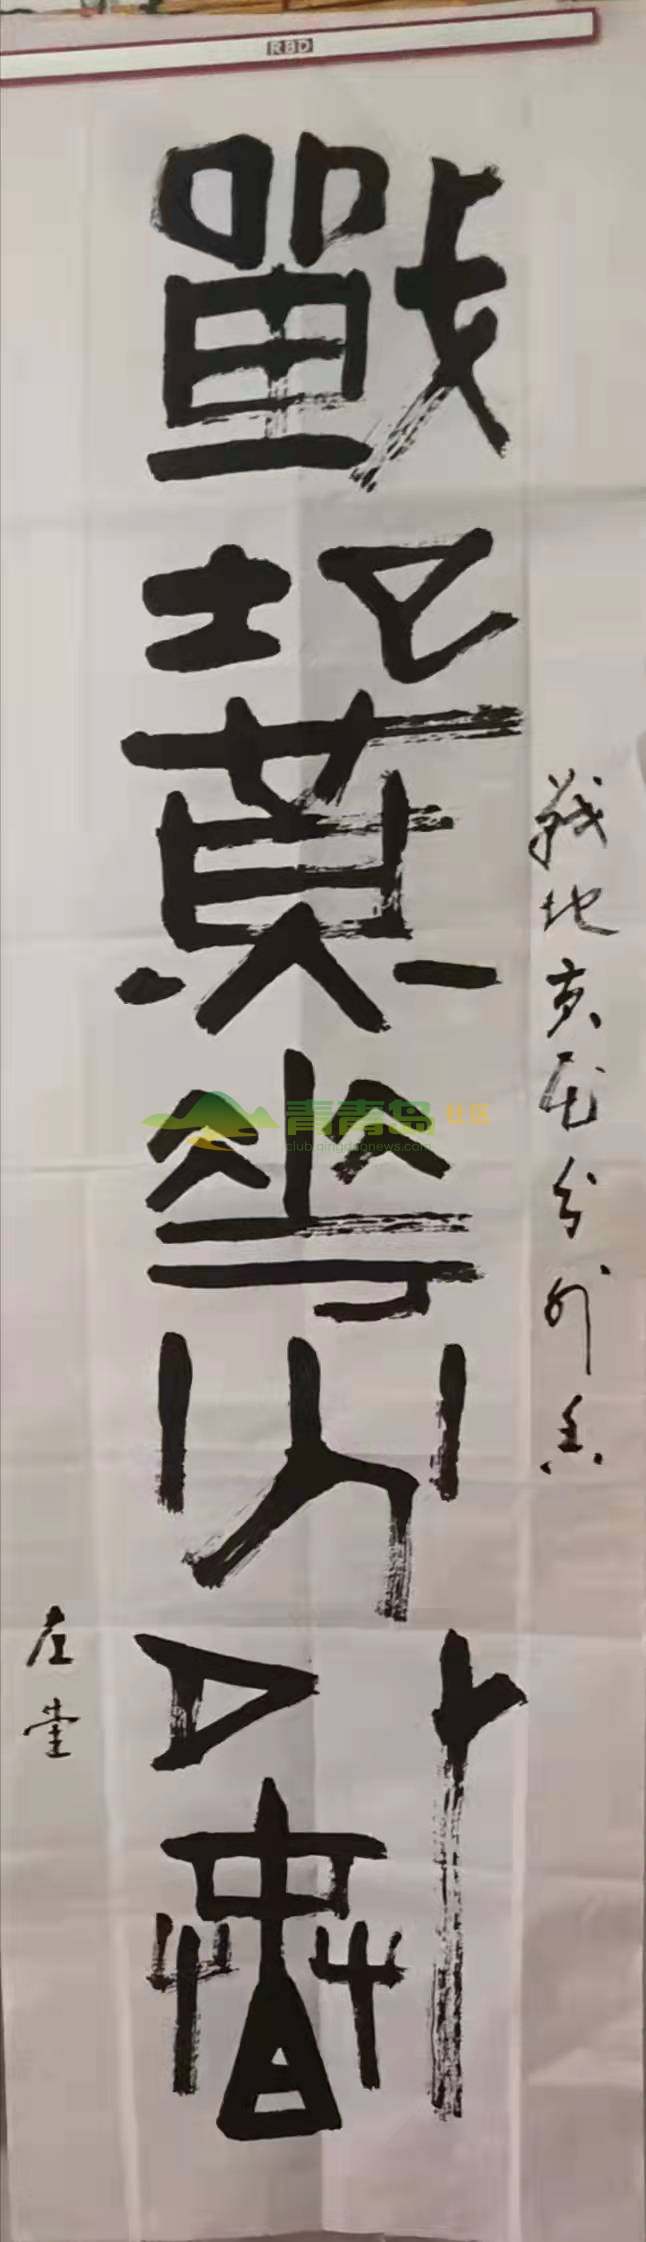 RBD
戰地黄華分外香
战地黄花分外香
左堂
青青岛社区
club.qingdaonews.com